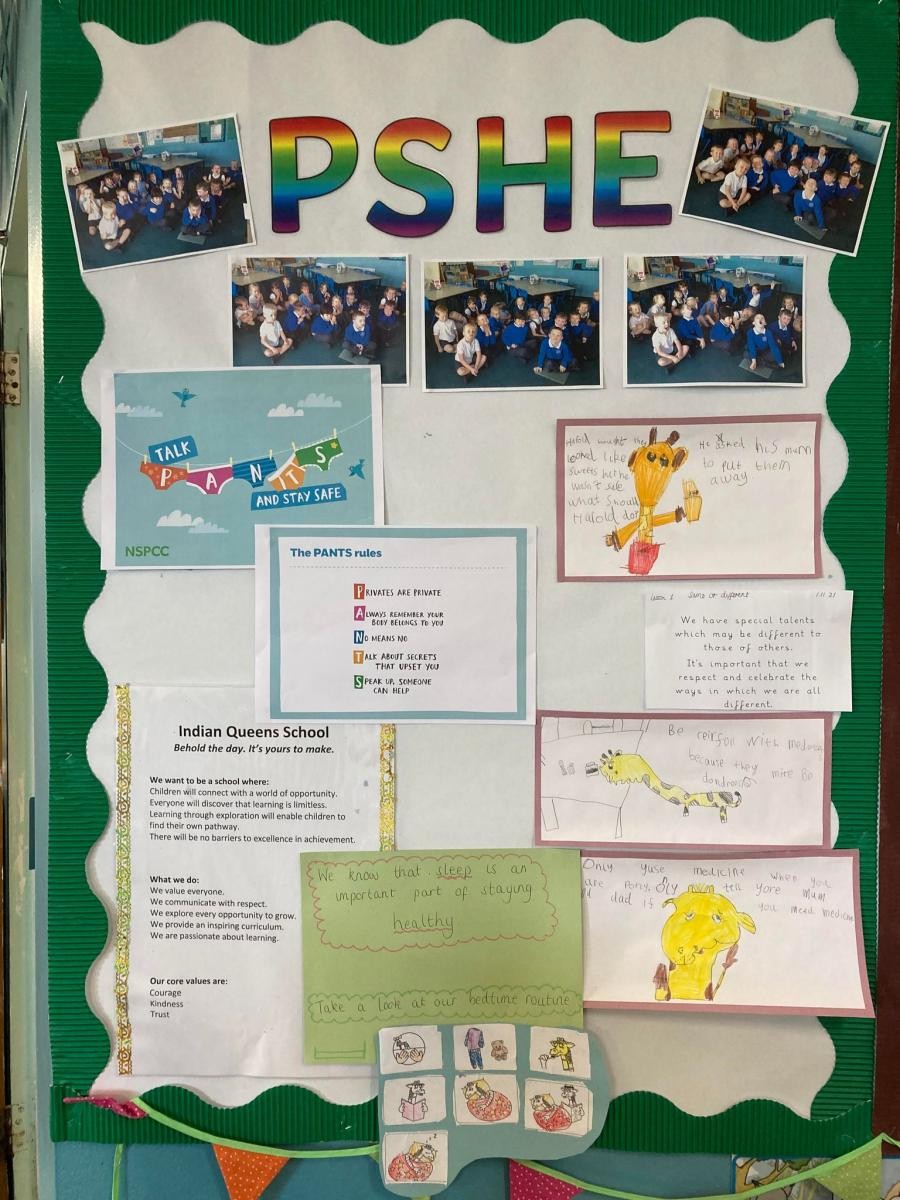 PSHE
TALK
PANTS
AND STAY SAFE
NSPCC
The PANTS rules
PRIVATES ARE PRIVATE
ALWAYS REMEMBER YOUR
BODY BELONGS TO YOU
NO MEANS NO
TALK ABOUT SECRETS
THAT UPSET YOU
SPEAK UP, SOMEONE
CAN HELP
Harold
looked like
sweets
wasn't safe
what should
Harold do?
He asked his mum
to put them
away
Same or different 1.11.21
We have special talents
which may be different to
those of others.
It's important that we
respect and celebrate the
ways in which we are all
different.
Indian Queens School
Behold the day. It's yours to make.
We want to be a school where:
Children will connect with a world of opportunity.
Everyone will discover that learning is limitless.
Learning through exploration will enable children to
find their own pathway.
There will be no barriers to excellence in achievement.
What we do:
We value everyone.
We communicate with respect.
We explore every opportunity to grow.
We provide an inspiring curriculum.
We are passionate about learning.
Our core values are:
Courage
Kindness
Trust
Be ceirfoll with
because they mite Be
We know that sleep is an
important part of staying
healthy
Take a look at our bedtime routine
Only yuse medicine when you
are tell yore mum
dad if you need medicine